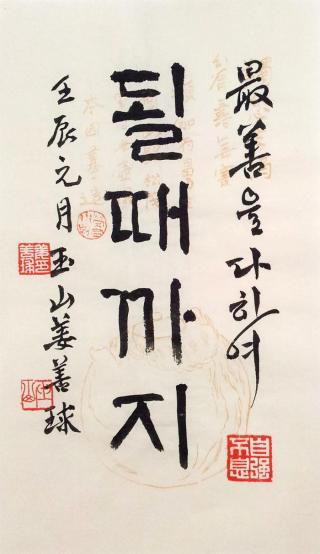 最善을 다하여
될때까지
壬辰元月 玉山 姜善球
自强不息